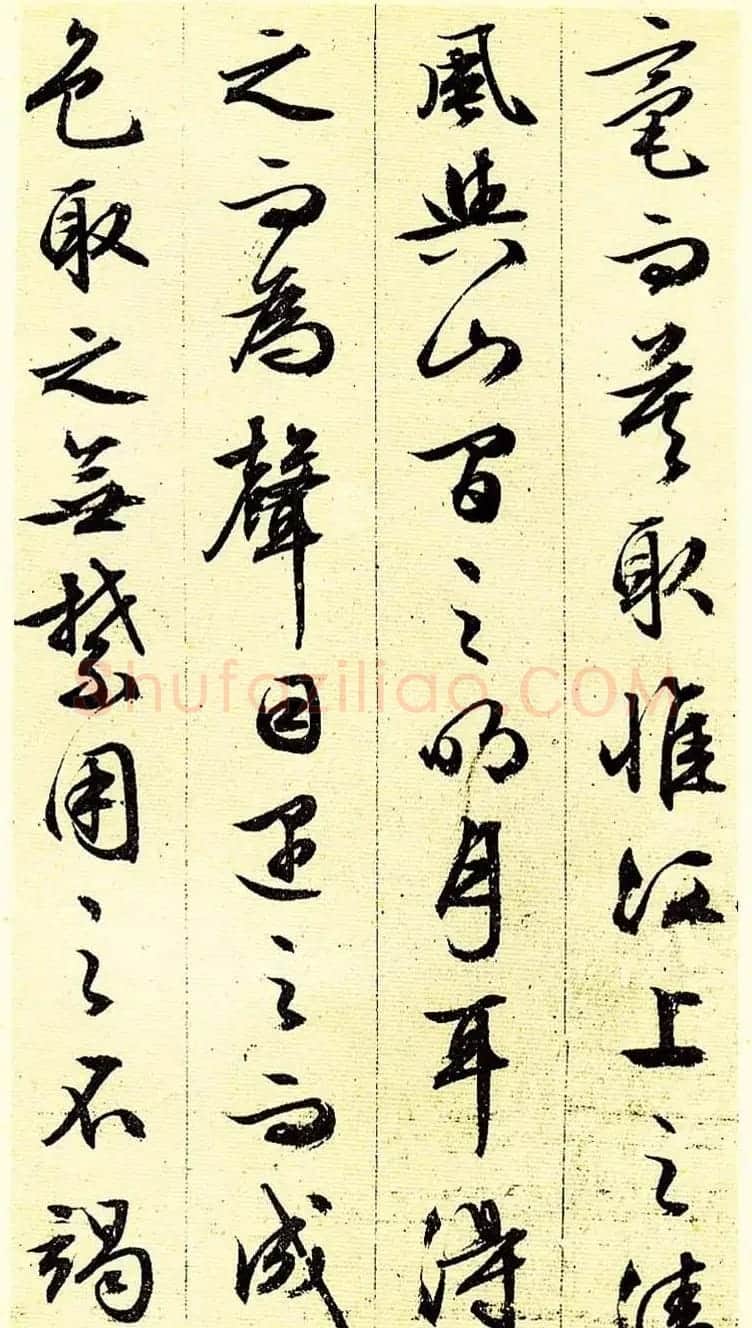 毫而莫取惟江上之清
風與山間之明月耳得
之而為聲目遇之而成
色取之無禁用之不竭
Shufaziliao.COM